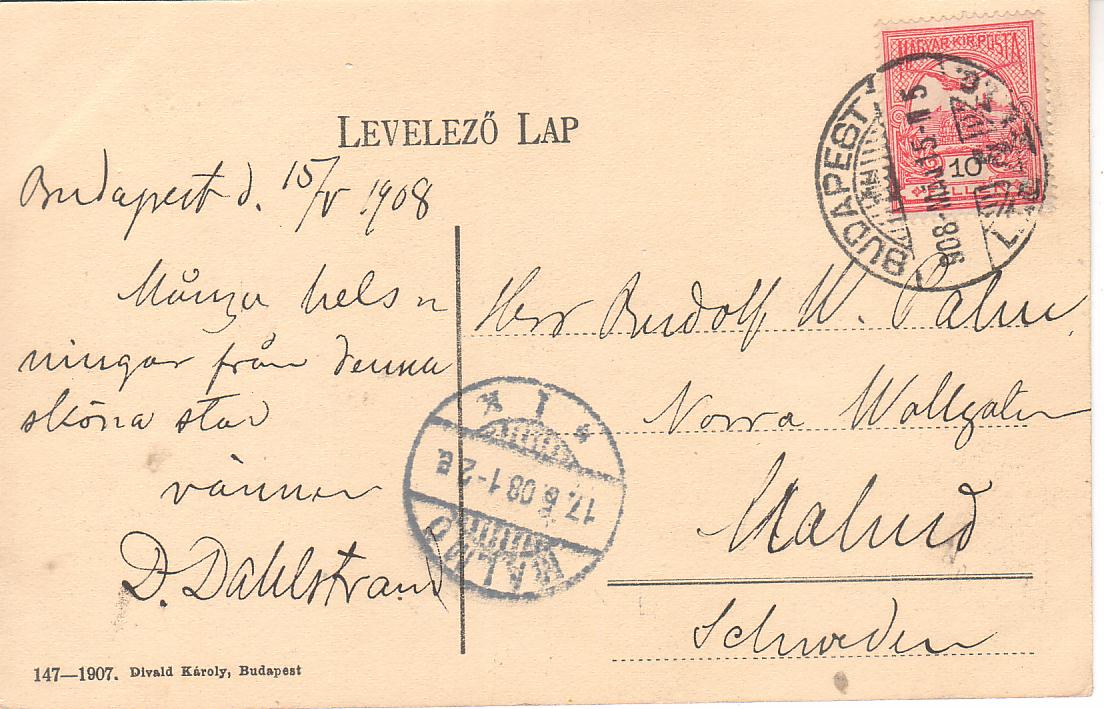 LEVELEZŐ LAP
MAGYAR KIR. POSTA
10
BUDAPEST
908
Budapest d. 15/V 1908
Många hels
ningar från denna
sköna stad
vännen
D. Dahlstrand
Herr Rudolf W. Palm
Norra Wallgatan
Malmö
Schweden
17.5.08 1-2
MALMÖ
147—1907. Divald Károly, Budapest